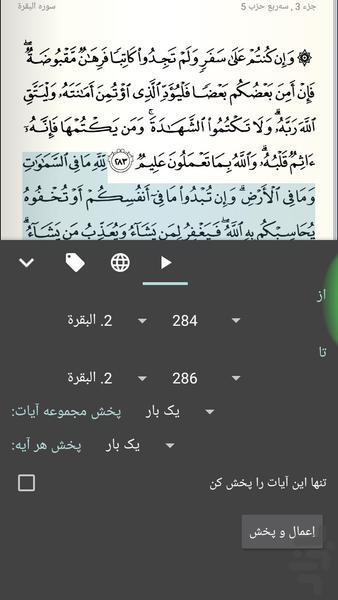 جزء 3 , سه‌ربع حزب 5
سوره البقرة
۞ وَإِن كُنتُمْ عَلَىٰ سَفَرٍ وَلَمْ تَجِدُوا۟ كَاتِبًا فَرِهَـٰنٌ مَّقْبُوضَةٌ ۖ
فَإِنْ أَمِنَ بَعْضُكُم بَعْضًا فَلْيُؤَدِّ ٱلَّذِى ٱؤْتُمِنَ أَمَـٰنَتَهُۥ وَلْيَتَّقِ
ٱللَّهَ رَبَّهُۥ ۗ وَلَا تَكْتُمُوا۟ ٱلشَّهَـٰدَةَ ۚ وَمَن يَكْتُمْهَا فَإِنَّهُۥٓ
ءَاثِمٌ قَلْبُهُۥ ۗ وَٱللَّهُ بِمَا تَعْمَلُونَ عَلِيمٌ ٢٨٣ لِّلَّهِ مَا فِى ٱلسَّمَـٰوَٰتِ
وَمَا فِى ٱلْأَرْضِ ۗ وَإِن تُبْدُوا۟ مَا فِىٓ أَنفُسِكُمْ أَوْ تُخْفُوهُ
يُحَاسِبْكُم بِهِ ٱللَّهُ ۖ فَيَغْفِرُ لِمَن يَشَآءُ وَيُعَذِّبُ مَن يَشَآءُ ۗ
از
2. البقرة
284
تا
2. البقرة
286
پخش مجموعه آیات:
یک بار
پخش هر آیه:
یک بار
تنها این آیات را پخش کن
اِعمال و پخش